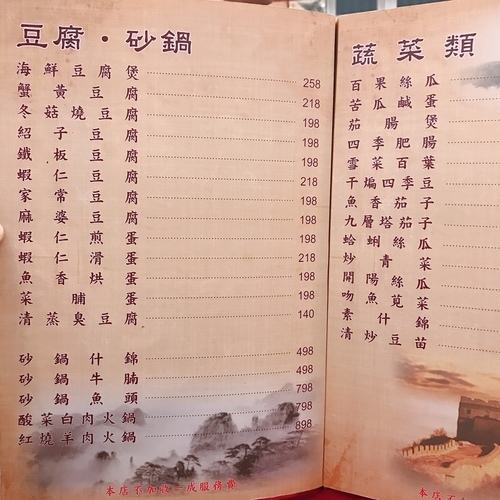 豆腐・砂鍋
海鮮豆腐煲 258
蟹黃豆腐 218
冬菇燒豆腐 198
紹子豆腐 198
鐵板豆腐 198
蝦仁豆腐 218
家常豆腐 198
麻婆豆腐 198
蝦仁煎蛋 198
蝦仁滑蛋 218
魚香烘蛋 198
菜脯蛋 198
清蒸臭豆腐 140
砂鍋什錦 498
砂鍋牛腩 498
砂鍋魚頭 798
酸菜白肉火鍋 798
紅燒羊肉火鍋 898
本店不加收一成服務費
蔬菜類
百果絲瓜
苦瓜鹹蛋
茄腸煲
四季肥腸
雪菜百葉
干煸四季豆
魚香茄子
九層塔茄子
蛤蜊絲瓜
炒青菜
開陽絲瓜
吻魚莧菜
素什錦
清炒豆苗
本店不